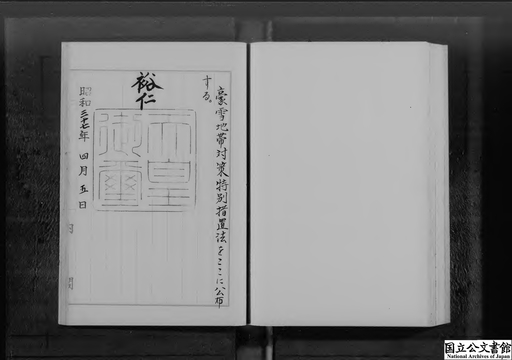 豪雪地帯対策特別措置法をここに公布
する。
裕仁
天皇
御璽
昭和三十七年 四月 五日
国立公文書館
National Archives of Japan